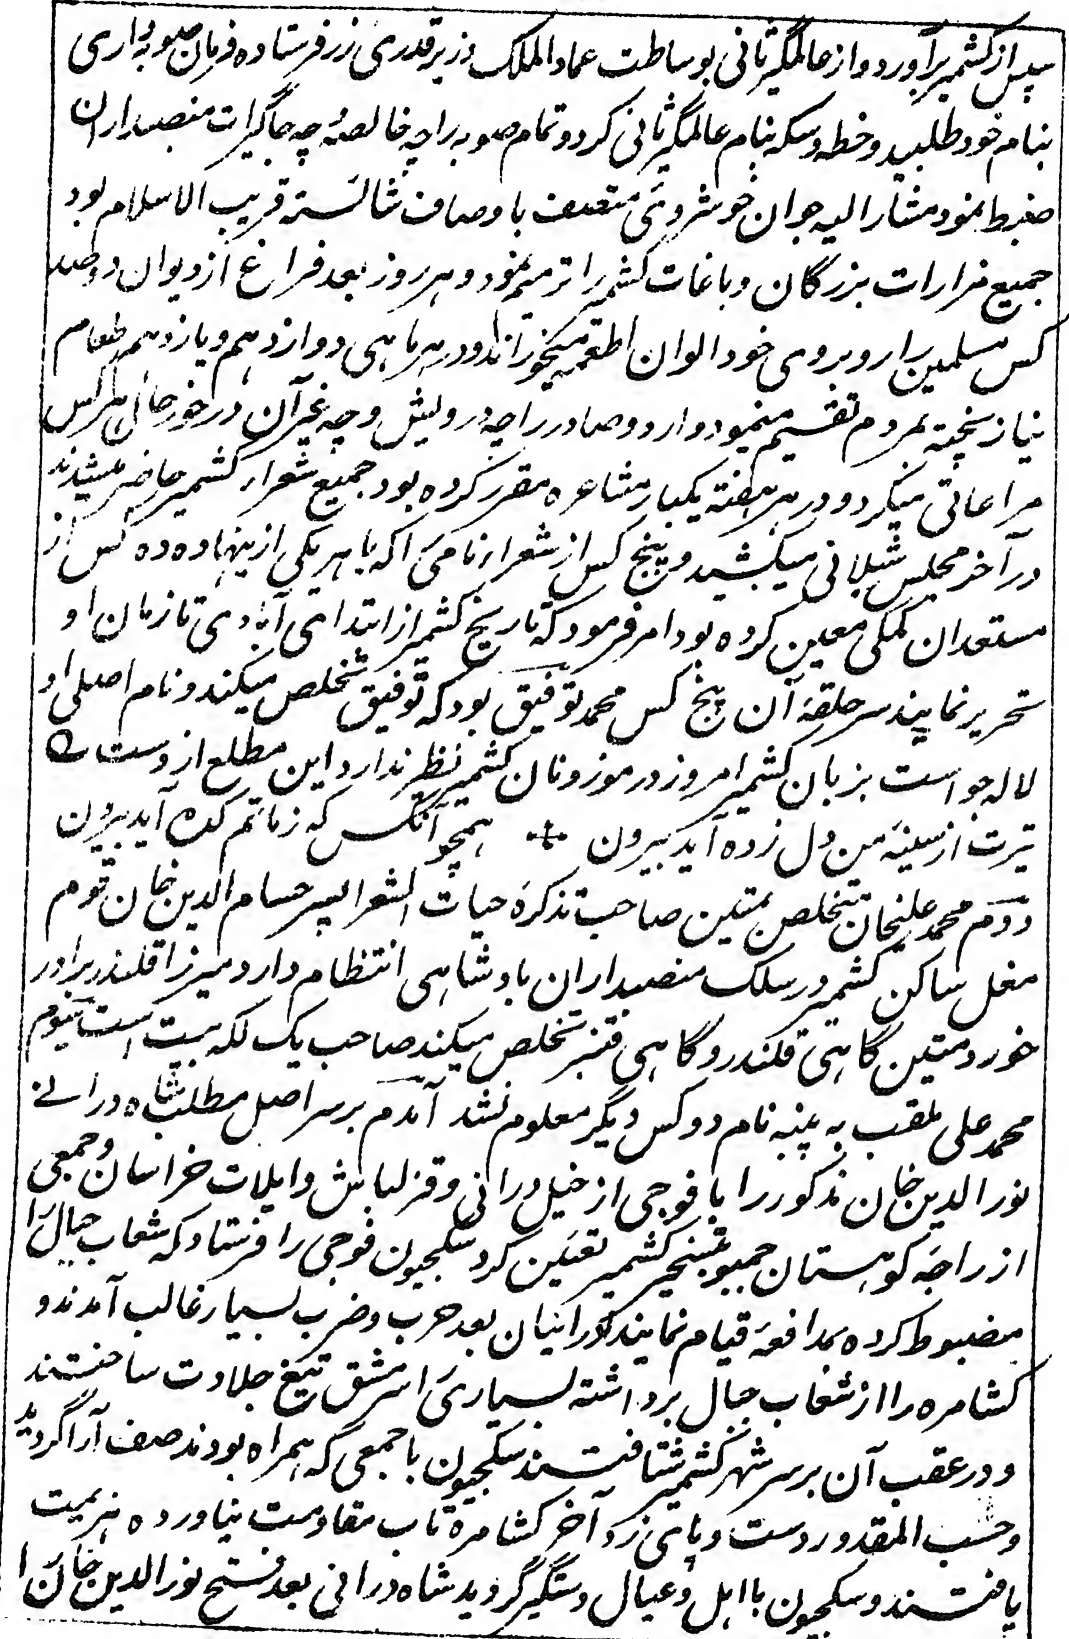 سپس از کشمیر برآورد و از عالمگیر ثانی بوساطت عماد الملک وزیر قدری زر فرستاده فرمان صوبه داری
بنام خود طلبید و خطبه و سکه بنام عالمگیر ثانی کرد و تمام صوبه را چه خالصه و چه جاگیرات منصبداران
ضبط نمود مشار الیه جوان خوشروئی متصف باوصاف شائسته قریب الاسلام بود
جمیع مزارات بزرگان و باغات کشمیر را ترمیم نمود و هر روز بعد فراغ از دیوان دو صد
کس مسلمین را روبروی خود الوان اطعمه میخوراند و در هر ماهی دوازدهم و یازدهم طعام
نیاز پخته بمردم تقسیم مینمود و وارد و صادر را چه درویش و چه غیر آن در خور حال هر کس
مراعاتی میکرد و در هر هفته یکبار مشاعره مقرر کرده بود جمیع شعراء کشمیر حاضر میشدند
در آخر مجلس شیلانی میکشید و پنج کس از شعراء نامی را که با هر یکی از ینها ده ده کس از
مستعدان کمکی معین کرده بود امر فرمود که تاریخ کشمیر از ابتدای آبادی تا زمان او
تحریر نمایند سر حلقۀ آن پنج کس محمد توفیق بود که توفیق تخلص میکند و نام اصلی او
لاله جو است بزبان کشمیر امروز در موزونان کشمیر نظیر ندارد این مطلع از دست ے
تیرت از سینۀ من دل زده آید بیرون ÷ همچو آنکس که زماتم کده آید بیرون
دوم محمد علیخان متخلص بمتین صاحب تذکرۀ حیات الشعرا پسر حسام الدین خان قوم
مغل ساکن کشمیر در سلک منصبداران بادشاهی انتظام دارد میرزا قلندر برادر
خورد متین گاهی قلندر و گاهی قنبر تخلص میکند صاحب یک لکهه بیت است سیوم
محمد علی ملقب به پنبه نام دو کس دیگر معلوم نشد آمدم بر سر اصل مطلب شاه درانے
نور الدین خان مذکور را با فوجی از خیل درانی و قزلباش و ایلات خراسان و جمعی
از راجۀ کوهستان جمبو بتسخیر کشمیر تعین کرد سکهجیون فوجی را فرستاد که شعاب جبال را
مضبوط کرده بمدافعه قیام نمایند درانیان بعد حرب و ضرب بسیار غالب آمدند و
کشامره را از شعاب جبال برداشته بسیاری را سر مشق تیغ جلادت ساختند
و در عقب آن بر سر شهر کشمیر شتافتند سکهجیون با جمعی که همراه بودند صف آرا گردید
و حسب المقدور دست و پای زد آخر کشامره تاب مقاومت نیاورده هزیمت
یافتند و سکهجیون با اهل و عیال دستگیر گردید شاه درانی بعد فتح نور الدین خان را